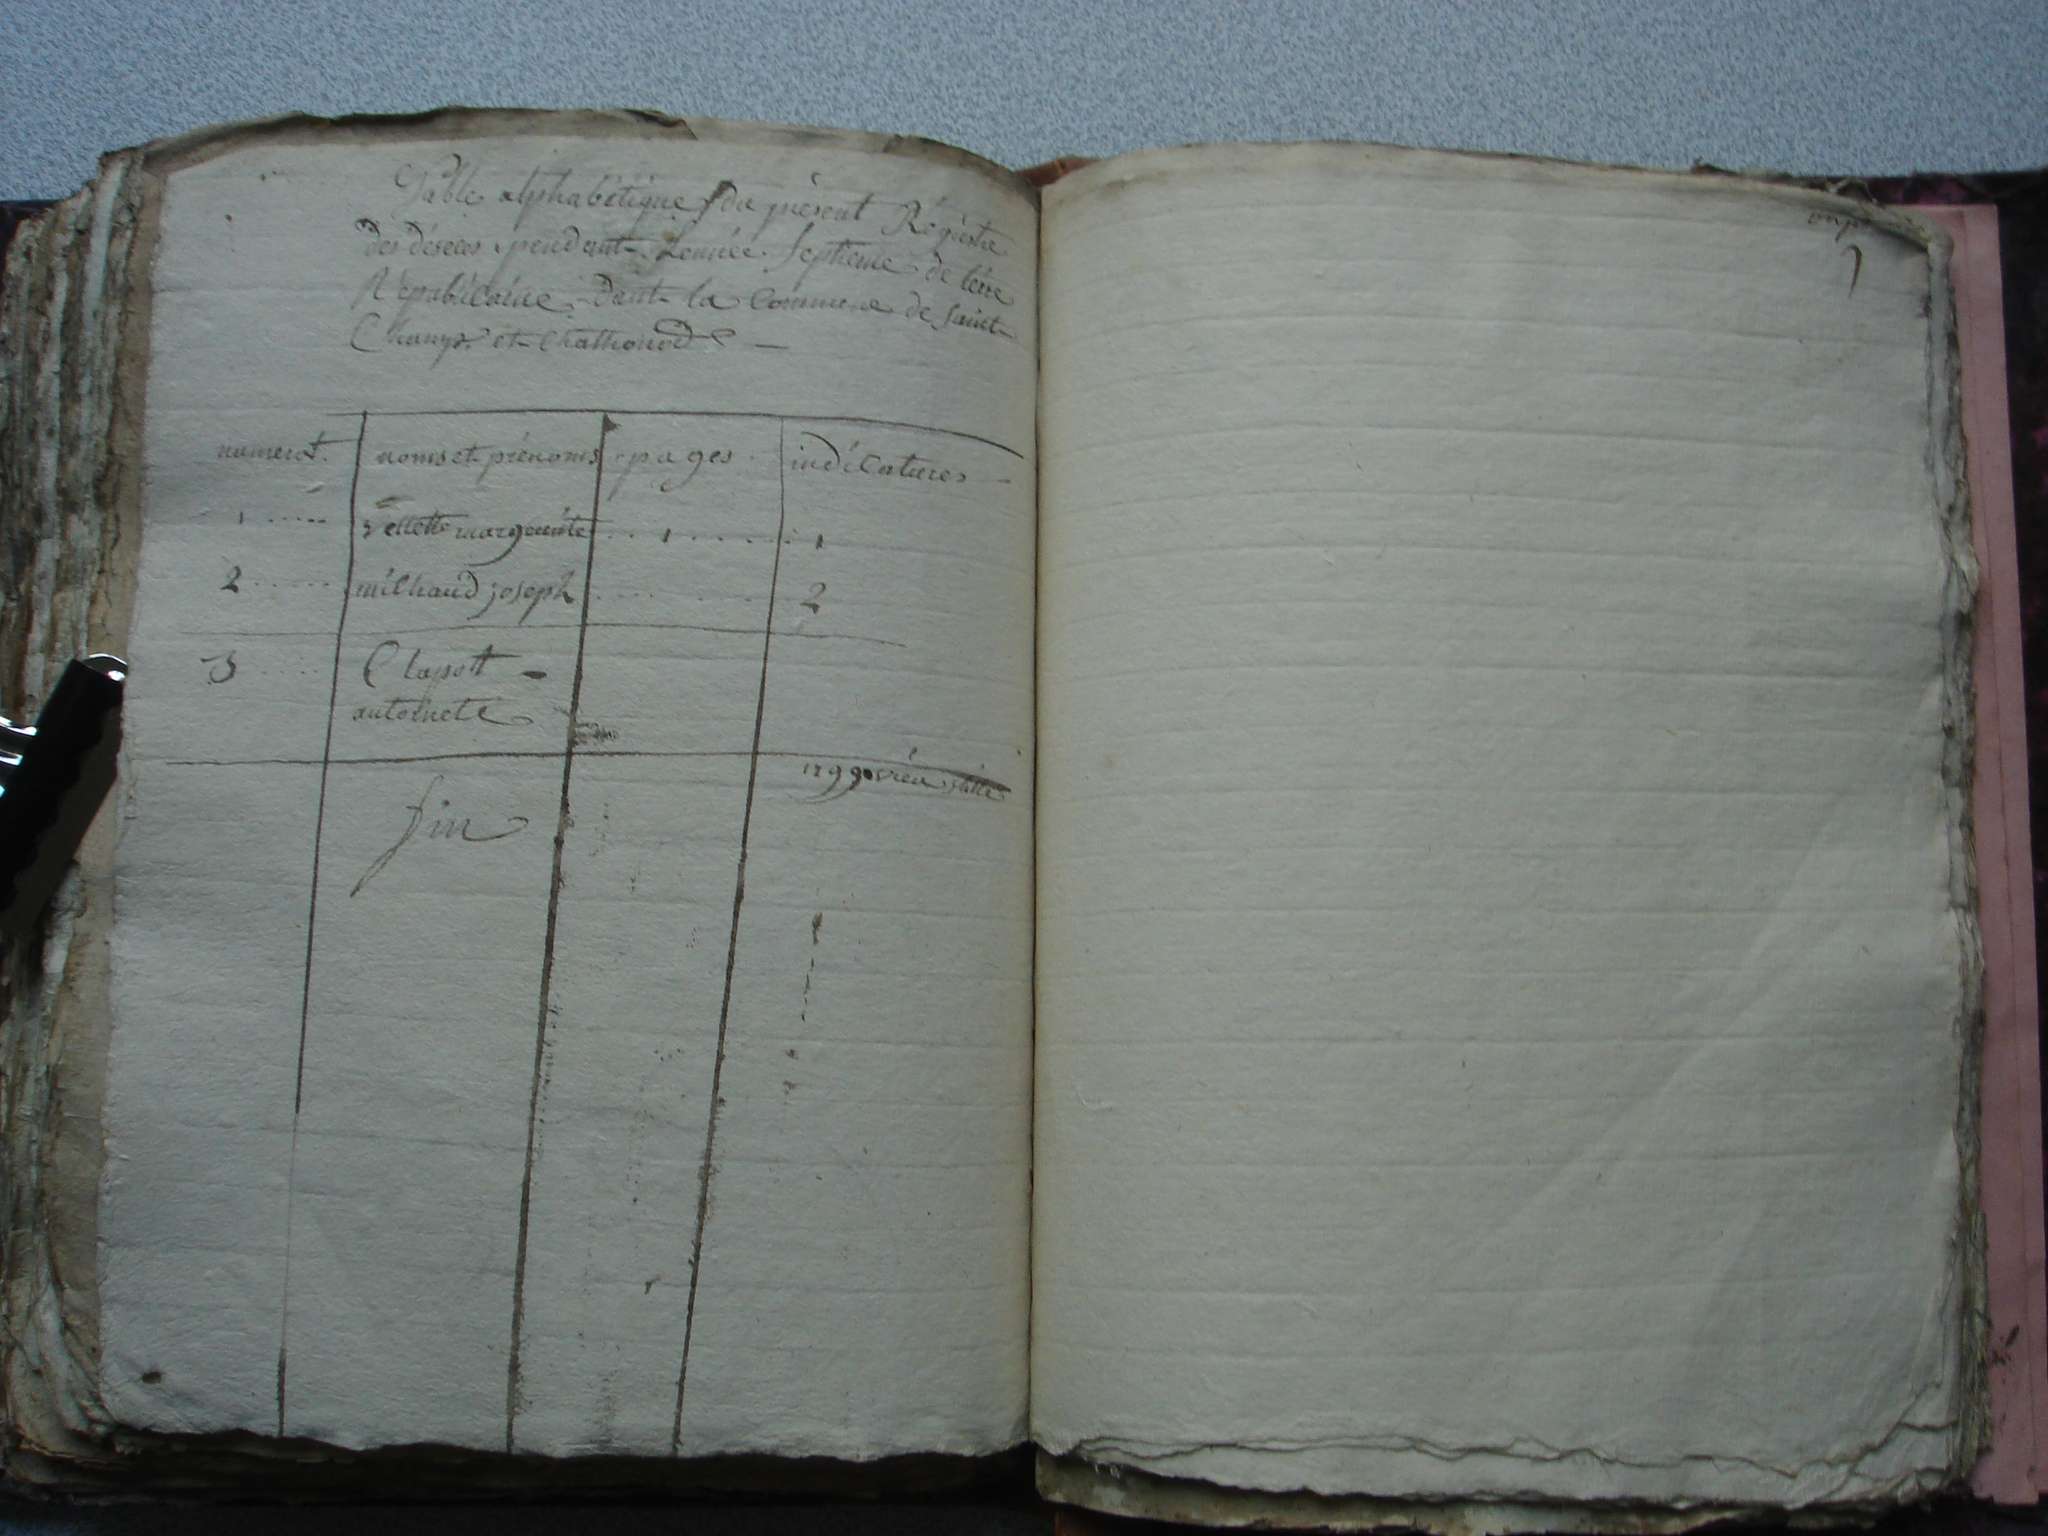 Table alphabétique du présent Régistre
des déseces pendant Lennée Septieme de lérre
Répablicaine Dant la Commune de Saint
Champ et Chathonod
numerot noms et prénoms pages indicatures
1 ..... vellett margueritte .. 1 ..... 1
2 ..... milhaud joseph ..... 2
3 ..... Clapott -
antoinete
1799
fin